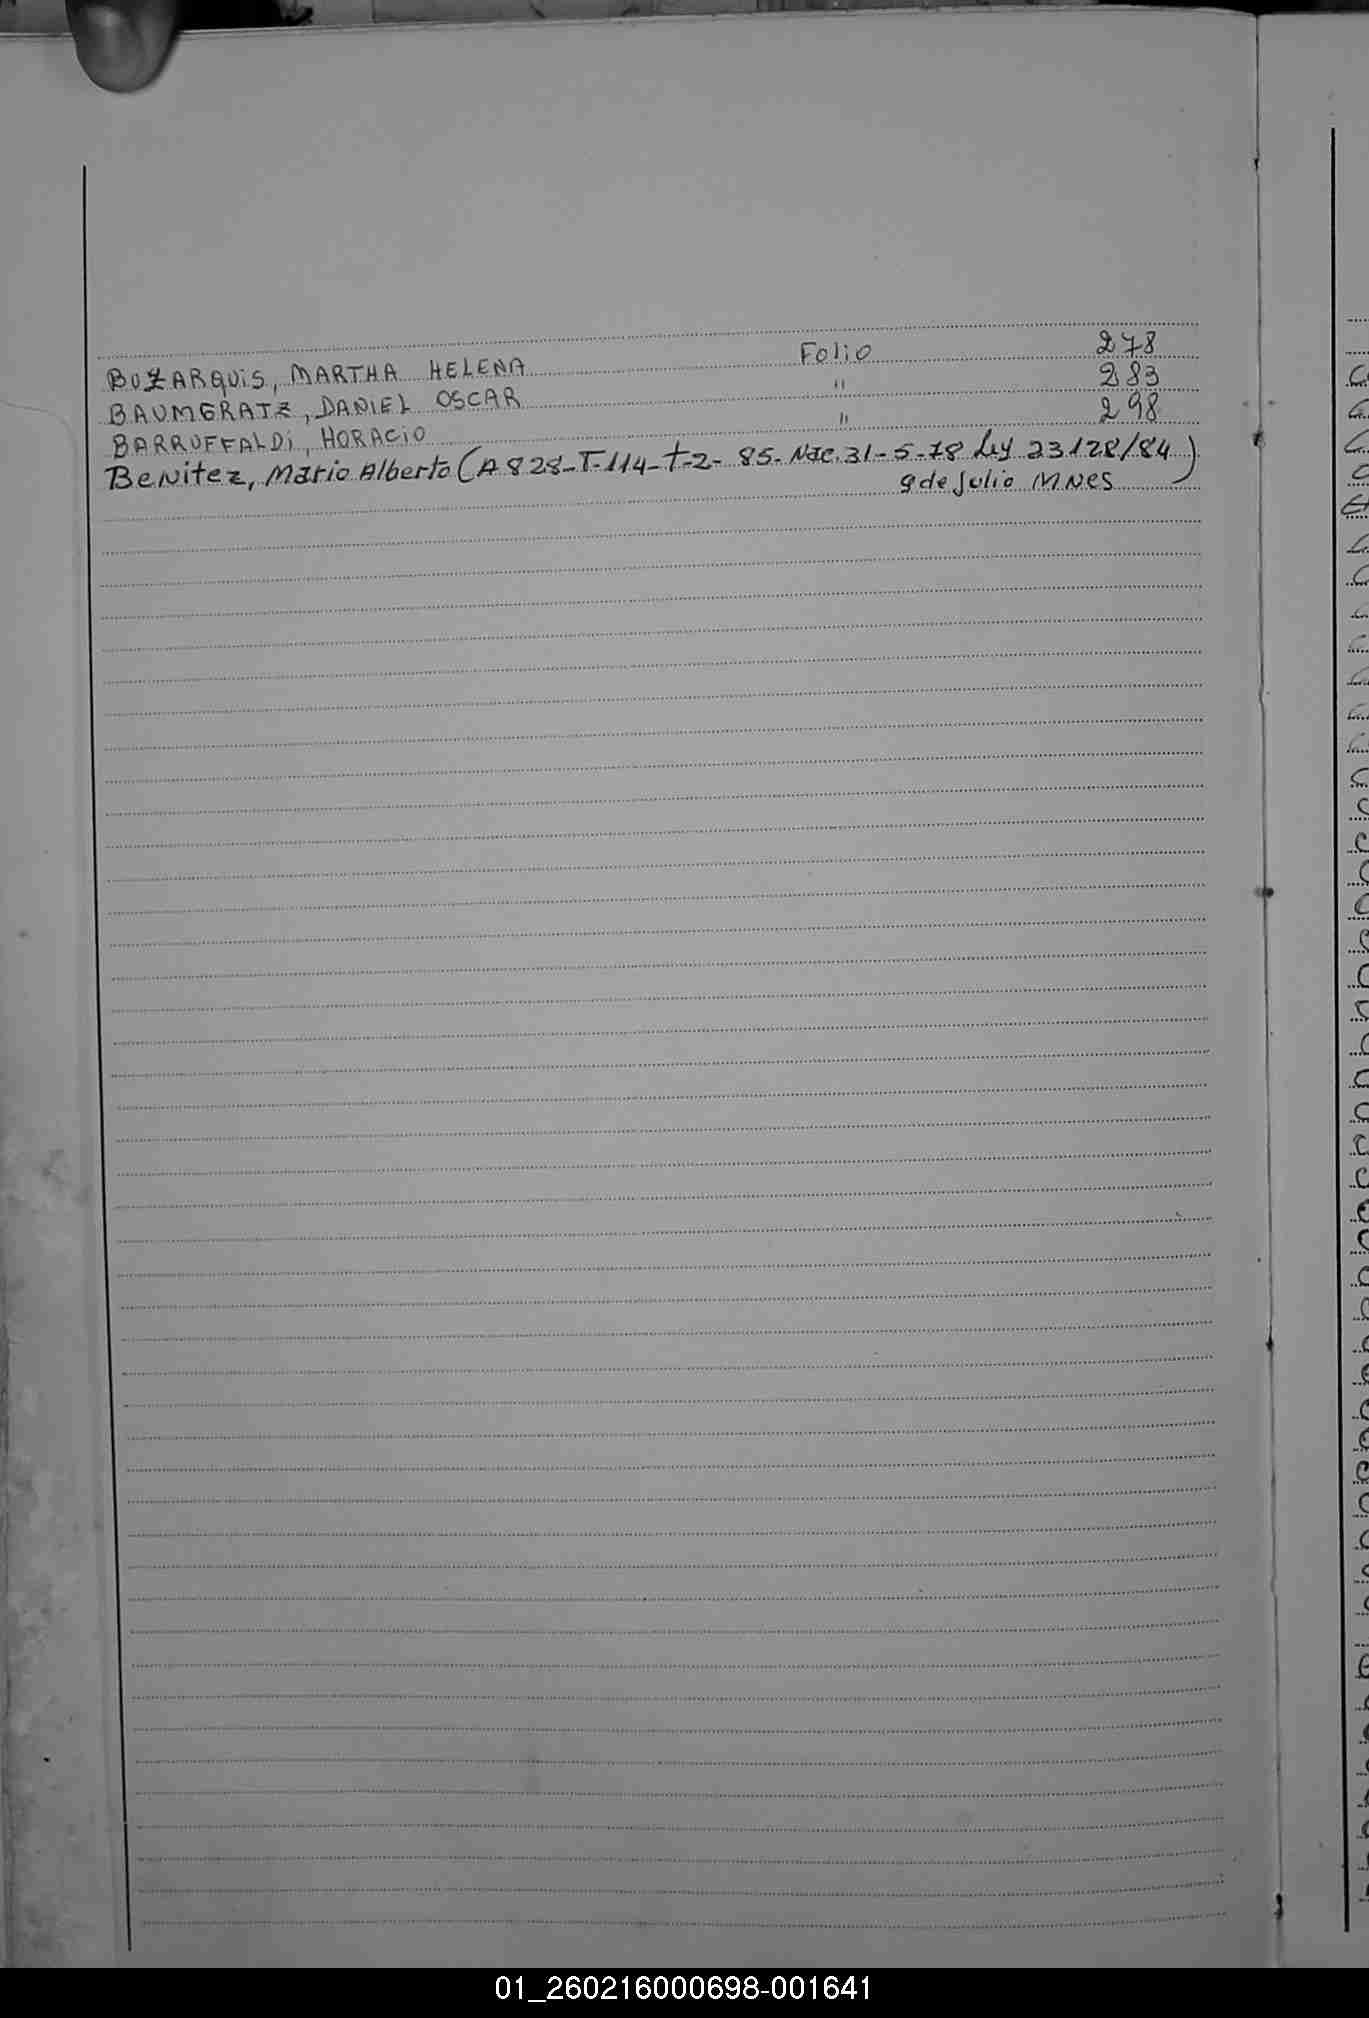 BOZARQUIS, MARTHA HELENA Folio 278
BAUMGRATZ, DANIEL OSCAR " 283
BARRUFFALDI, HORACIO " 298
Benitez, Mario Alberto (A 828-T-114-t-2- 85- Nac. 31-5-78 Ley 23128/84)
9 de Julio MNES
01_260216000698-001641